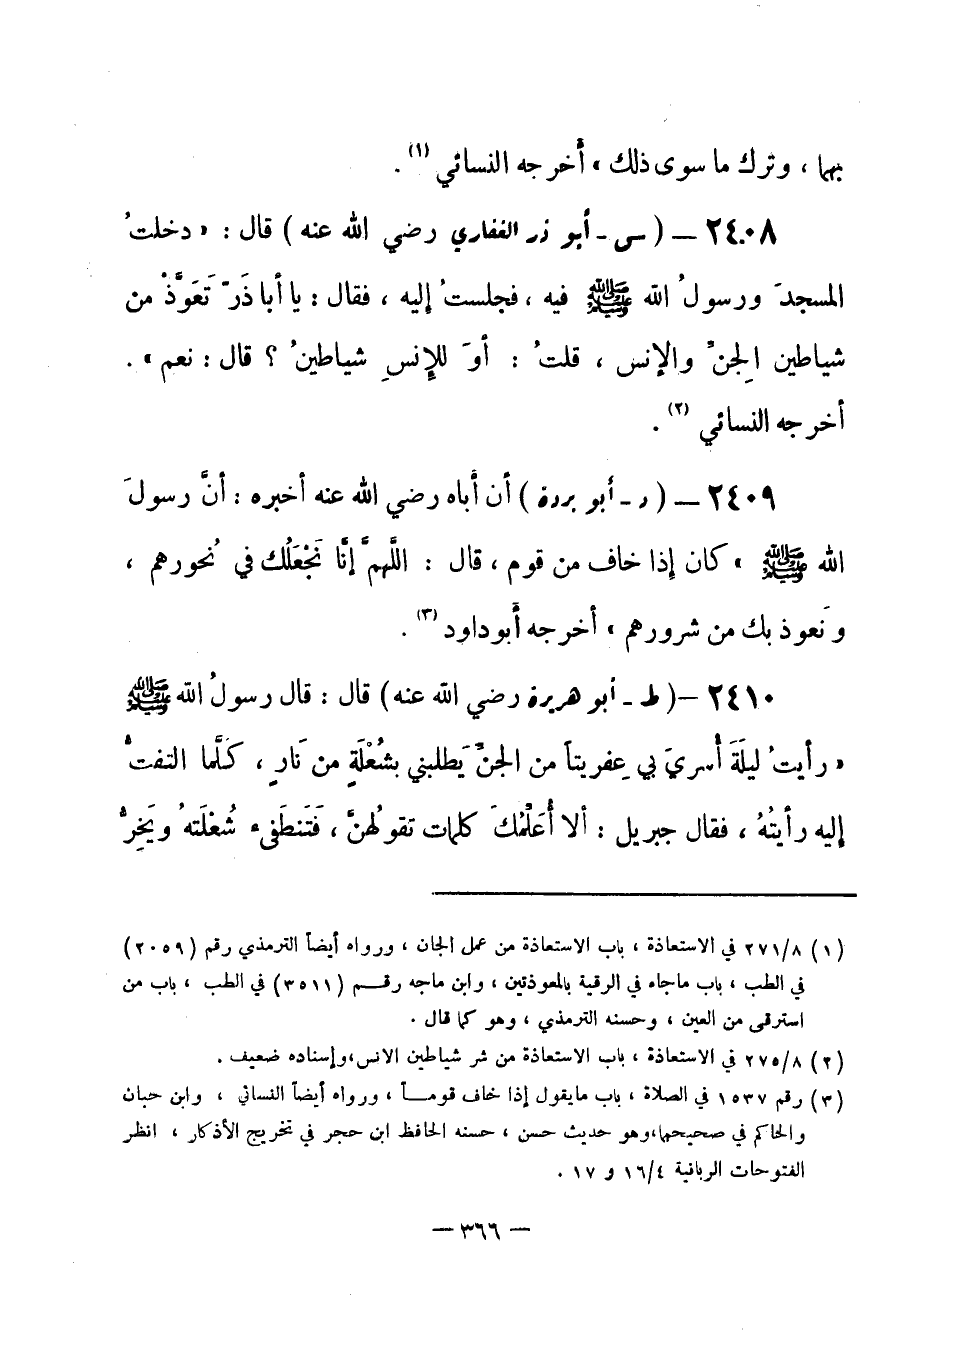 بهما ، وترك ما سوى ذلك » أخرجه النسائي (١) .
٢٤٠٨ – ( س - أبو ذر الغفاري رضي الله عنه ) قال : « دخلتُ
المسجدَ ورسولُ الله ﷺ فيه ، فجلستُ إليه ، فقال : يا أبا ذَرّ تَعَوَّذْ من
شياطين الجِنِّ والإنس ، قلتُ : أوَ للإِنسِ شياطينُ ؟ قال : نعم » .
أخرجه النسائي (٢) .
٢٤٠٩ – ( د - أبو بردة ) أن أباه رضي الله عنه أخبره : أنَّ رسولَ
الله ﷺ « كان إذا خاف من قوم ، قال : اللَّهمَّ إنَّا نَجْعَلُك في نُحورهم ،
ونَعوذ بك من شرورهم » أخرجه أبو داود (٣) .
٢٤١٠ –( ط - أبو هريرة رضي الله عنه ) قال : قال رسولُ الله ﷺ
« رأيتُ ليلَةَ أُسريَ بي عِفريتاً من الجنِّ يَطلبني بشُعْلَةٍ من نَارٍ ، كلَّما التفتُّ
إليه رأيتُهُ ، فقال جبريل : ألا أُعَلِّمُكَ كلمات تقولُهنَّ ، فَتَنطَفىء شُعْلَتهُ ويَخِرُّ
(١) ٢٧١/٨ في الاستعاذة ، باب الاستعاذة من عمل الجان ، ورواه أيضاً الترمذي رقم (٢٠٥٩)
في الطب ، باب ماجاء في الرقية بالمعوذتين ، وابن ماجه رقــم (٣٥١١) في الطب ، باب من
استرقى من العين ، وحسنه الترمذي ، وهو كما قال .
(٢) ٢٧٥/٨ في الاستعاذة ، باب الاستعاذة من شر شياطين الانس،وإسناده ضعيف .
(٣) رقم ١٥٣٧ في الصلاة ، باب مايقول إذا خاف قومــاً ، ورواه أيضاً النسائي ، وابن حبان
والحاكم في صحيحيهما،وهو حديث حسن ، حسنه الحافظ ابن حجر في تخريج الأذكار ، انظر
الفتوحات الربانية ١٦/٤ و ١٧ .
– ٣٦٦ –